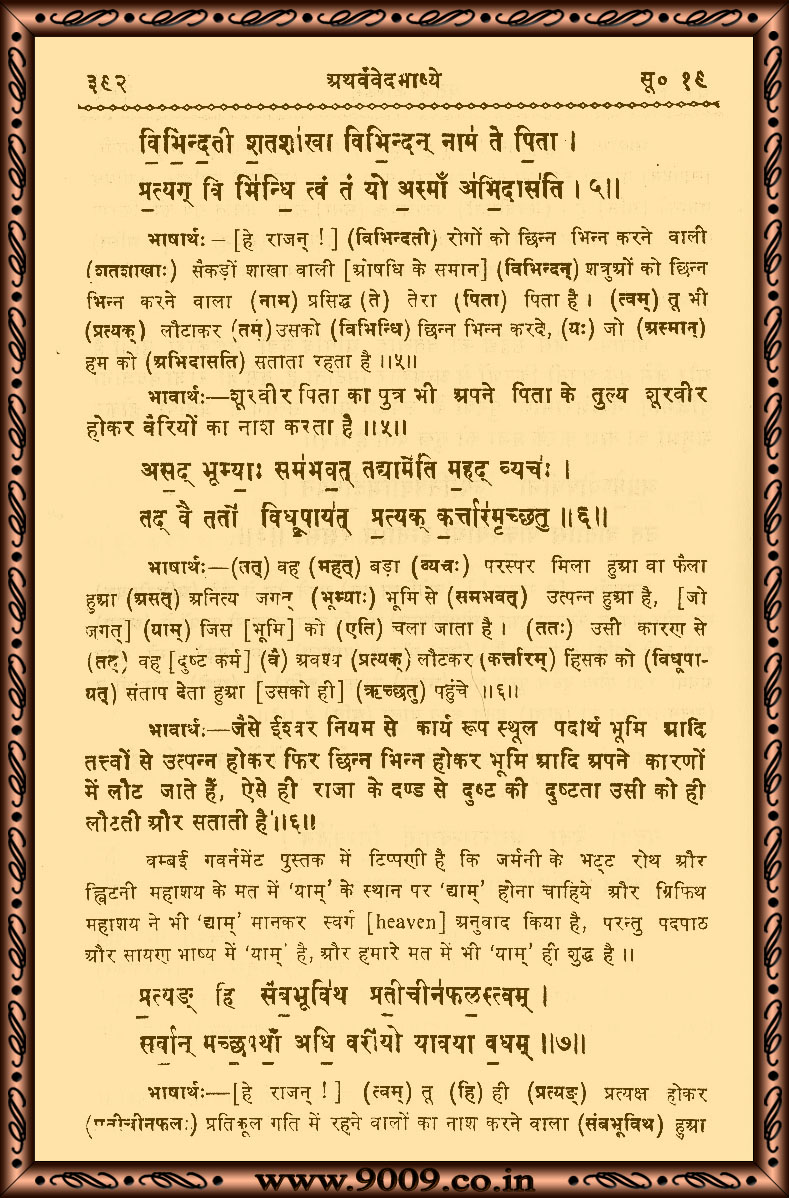 ३९२ अथर्ववेदभाष्ये सू० १९
विभिन्दती शतशाखा विभिन्दन् नाम ते पिता ।
प्रत्यग् वि भिन्धि त्वं तं यो अस्माँ अभिदासति । ५॥
भाषार्थः – [हे राजन् !] (विभिन्दती) रोगों को छिन्न भिन्न करने वाली
(शतशाखाः) सैकड़ों शाखा वाली [ओषधि के समान] (विभिन्दन्) शत्रुओं को छिन्न
भिन्न करने वाला (नाम) प्रसिद्ध (ते) तेरा (पिता) पिता है । (त्वम्) तू भी
(प्रत्यक्) लौटाकर (तम्) उसको (विभिन्धि) छिन्न भिन्न करदे, (यः) जो (अस्मान्)
हम को (अभिदासति) सताता रहता है ॥५॥
भावार्थः—शूरवीर पिता का पुत्र भी अपने पिता के तुल्य शूरवीर
होकर वैरियों का नाश करता है ॥५॥
असद् भूम्याः समभवत् तद्यामेति महद् व्यचः ।
तद् वै ततो विधूपायत् प्रत्यक् कर्त्तारमृच्छतु ॥६॥
भाषार्थः—(तत्) वह (महत्) बड़ा (व्यचः) परस्पर मिला हुआ वा फैला
हुआ (असत्) अनित्य जगत् (भूम्याः) भूमि से (समभवत्) उत्पन्न हुआ है, [जो
जगत्] (याम्) जिस [भूमि] को (एति) चला जाता है । (ततः) उसी कारण से
(तद्) वह [दुष्ट कर्म] (वै) अवश्य (प्रत्यक्) लौटकर (कर्त्तारम्) हिंसक को (विधूपा-
यत्) संताप देता हुआ [उसको ही] (ऋच्छतु) पहुंचे ॥६॥
भावार्थः—जैसे ईश्वर नियम से कार्य रूप स्थूल पदार्थ भूमि आदि
तत्त्वों से उत्पन्न होकर फिर छिन्न भिन्न होकर भूमि आदि अपने कारणों
में लौट जाते हैं, ऐसे ही राजा के दण्ड से दुष्ट की दुष्टता उसी को ही
लौटती और सताती है ॥६॥
वम्बई गवर्नमेंट पुस्तक में टिप्पणी है कि जर्मनी के भट्ट रोथ और
ह्विटनी महाशय के मत में ‘याम्’ के स्थान पर ‘द्याम्’ होना चाहिये और ग्रिफिथ
महाशय ने भी ‘द्याम्’ मानकर स्वर्ग [heaven] अनुवाद किया है, परन्तु पदपाठ
और सायण भाष्य में ‘याम्’ है, और हमारे मत में भी ‘याम्’ ही शुद्ध है ॥
प्रत्यङ् हि संबभूविथ प्रतीचीनफलस्त्वम् ।
सर्वान् मच्छपथाँ अधि वरीयो यावया वधम् ॥७॥
भाषार्थः—[हे राजन् !] (त्वम्) तू (हि) ही (प्रत्यङ्) प्रत्यक्ष होकर
(प्रतीचीनफलः) प्रतिकूल गति में रहने वालों का नाश करने वाला (संबभूविथ) हुआ
www.9009.co.in